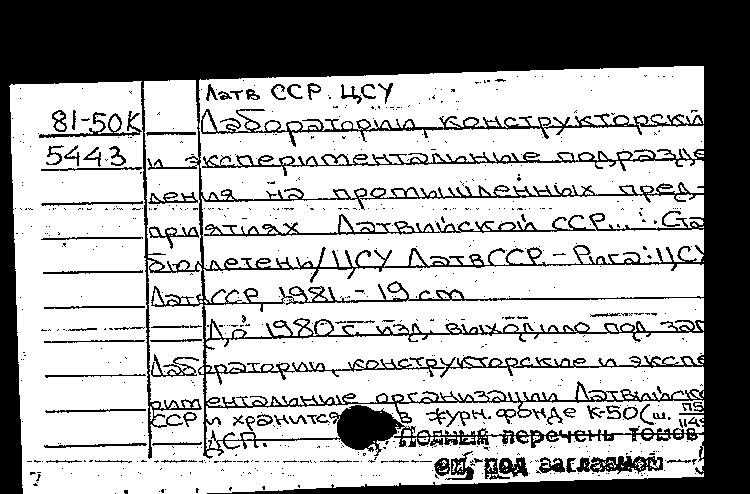 Латв ССР. ЦСУ
81-50К Лаборатории, конструкторски
5443 и экспериментальные подразде
ления на промышленных пред-
приятиях Латвийской ССР... : Ста
бюллетень/ЦСУ ЛатвССР. - Рига: ЦСУ
ЛатвССР, 1981. - 19 cm
До 1980 г. изд. выходило под заг
Лаборатории, конструкторские и экспе
риментальные организации Латвийско
ССР и хранится в журн. фонде К-50(ш.
ДСП. Полный перечень томов
см, под заглавием
7